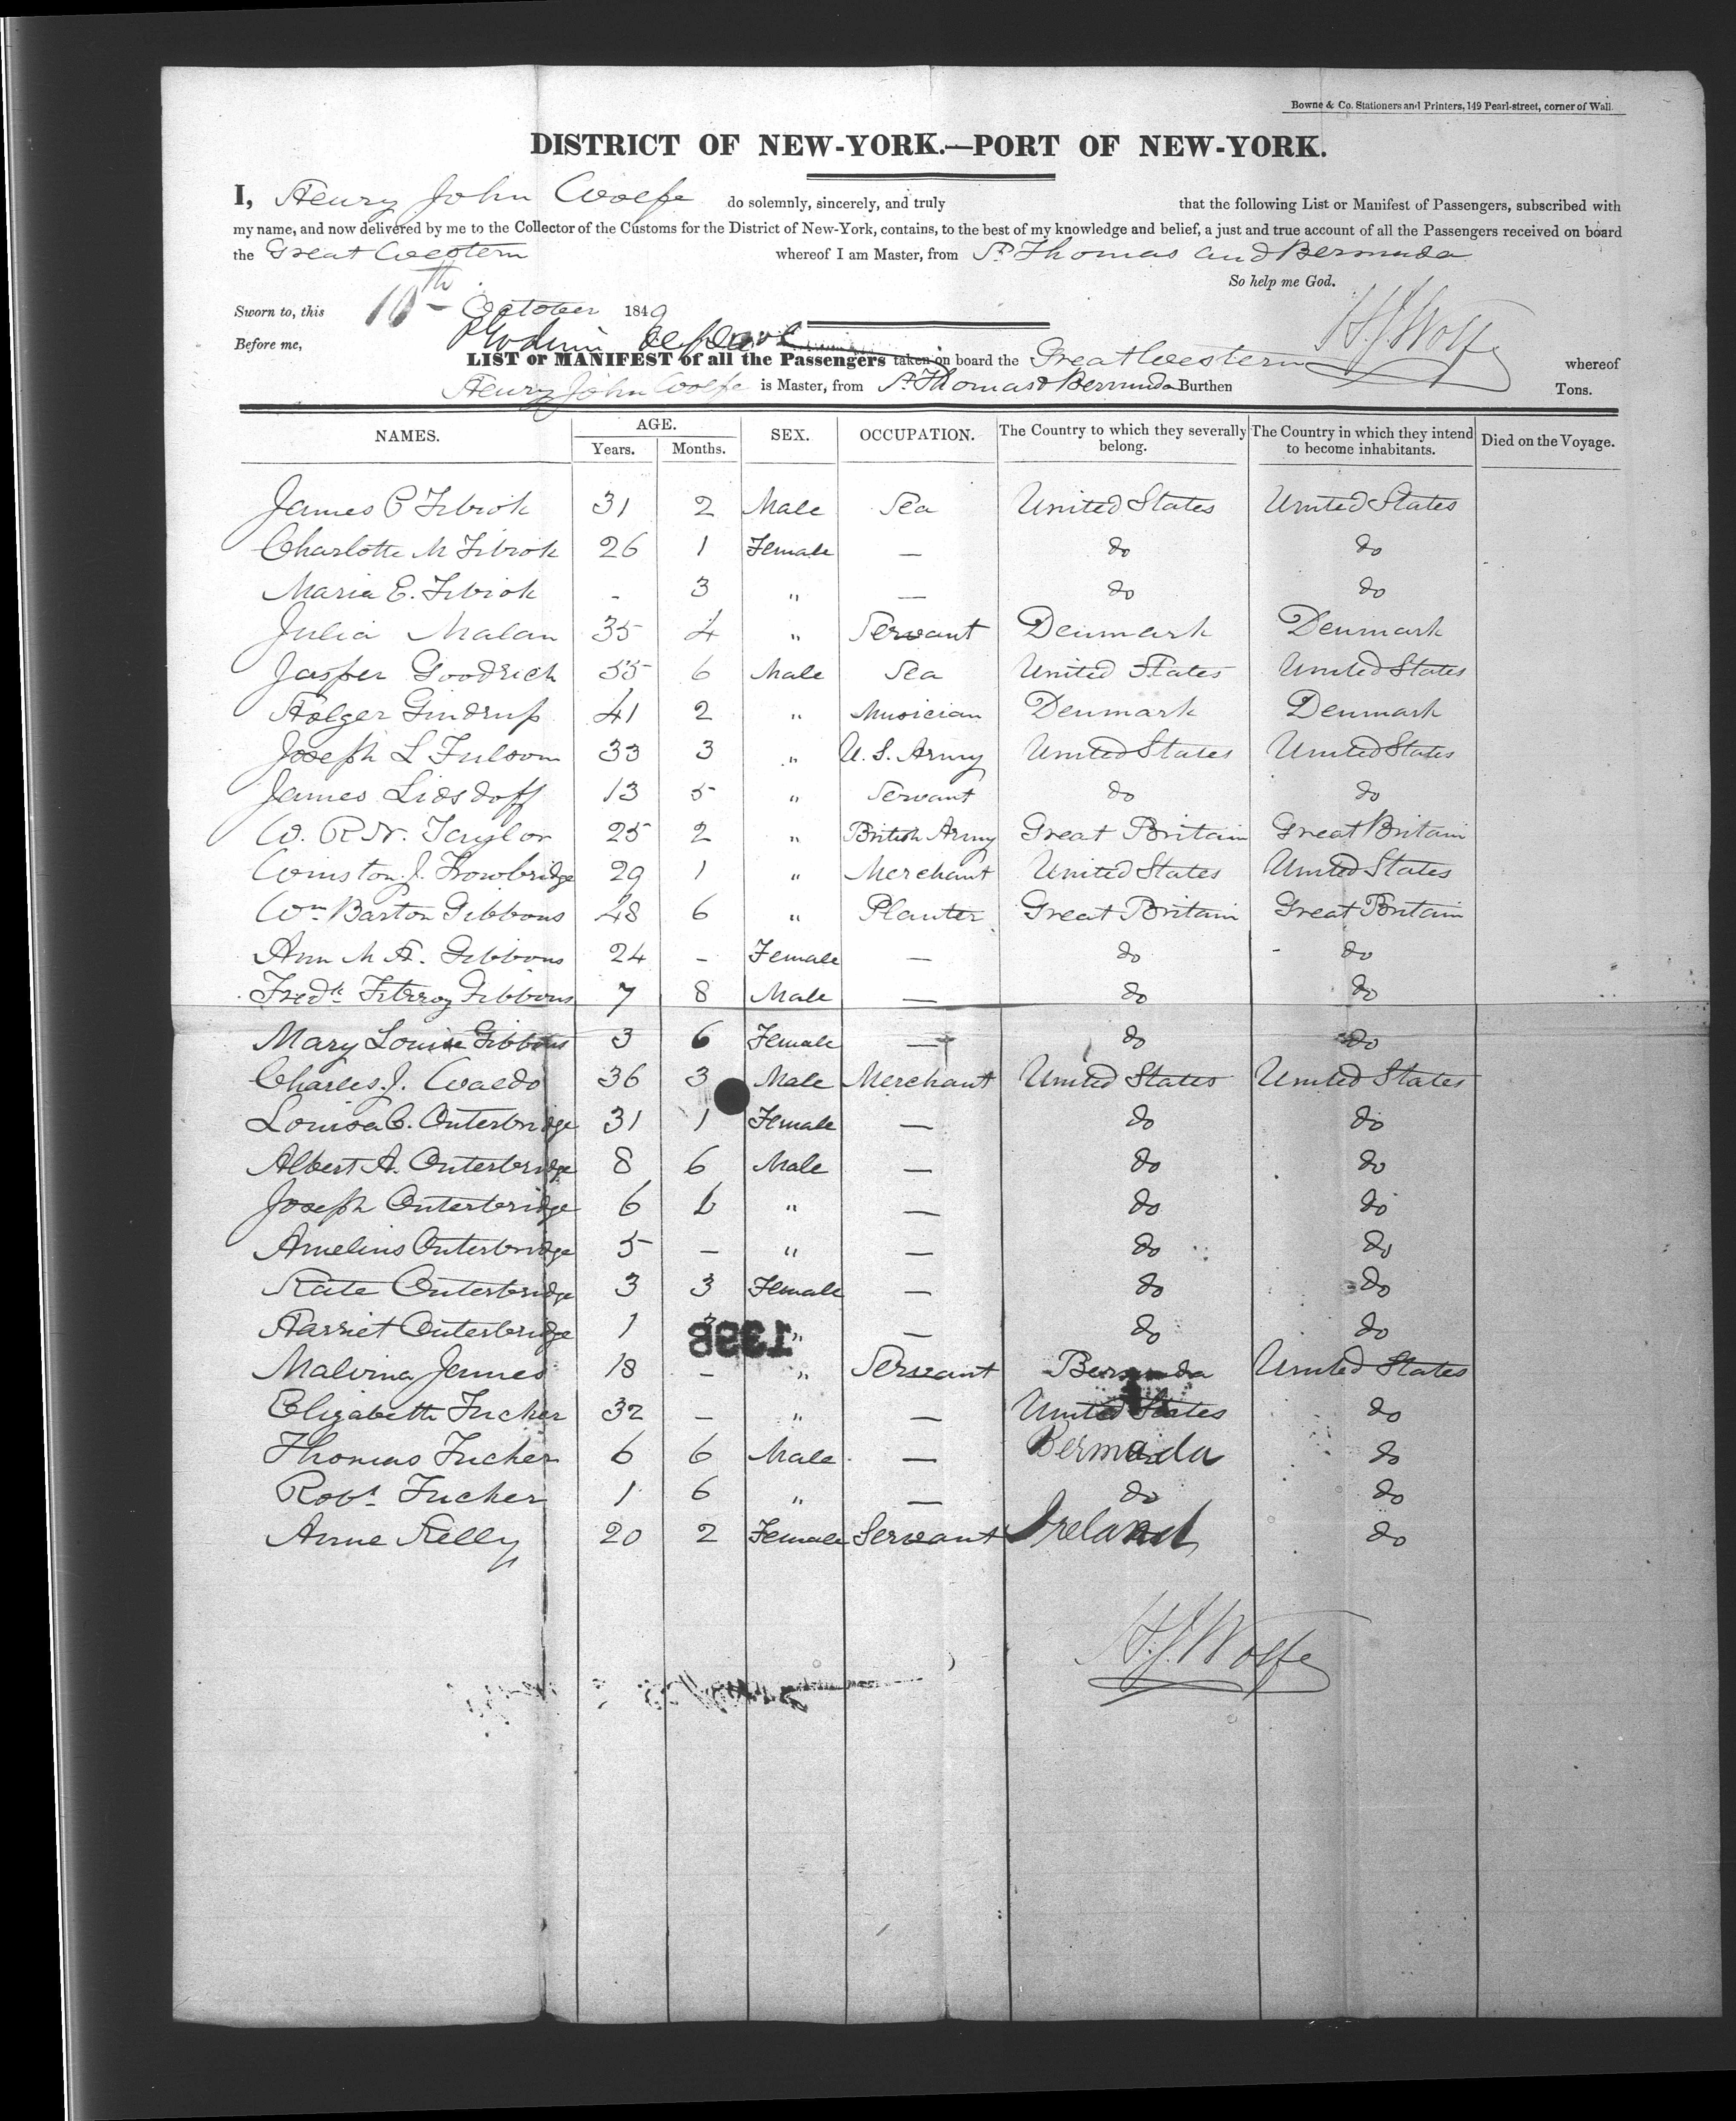 Bowne & Co. Stationers and Printers, 149 Pearl-street, corner of Wall.
DISTRICT OF NEW-YORK.—PORT OF NEW-YORK.
I, Henry John Wolfe do solemnly, sincerely, and truly that the following List or Manifest of Passengers, subscribed with
my name, and now delivered by me to the Collector of the Customs for the District of New-York, contains, to the best of my knowledge and belief, a just and true account of all the Passengers received on board
the Great Western whereof I am Master, from St Thomas and Bermuda
So help me God.
Sworn to, this 10th October 1849
H. J. Wolfe
Before me,
LIST or MANIFEST of all the Passengers taken on board the Great Western whereof
Henry John Wolfe is Master, from St Thomas & Bermuda Burthen Tons.
NAMES. AGE. Years. Months. SEX. OCCUPATION. The Country to which they severally belong. The Country in which they intend to become inhabitants. Died on the Voyage.
James P 31 2 Male Sea United States United States
Charlotte M 26 1 Female — do do
Maria E. - 3 " — do do
Julia Malan 35 4 " Servant Denmark Denmark
Jasper Goodrich 55 6 Male Sea United States United States
Holger Gindrup 41 2 " Musician Denmark Denmark
Joseph L Fulsom 33 3 " U. S. Army United States United States
James 13 5 " Servant do do
W. R. N. Taylor 25 2 " British Army Great Britain Great Britain
Winston J. Trowbridge 29 1 " Merchant United States United States
Wm Barton Gibbons 48 6 " Planter Great Britain Great Britain
Ann M A. Gibbons 24 - Female — do do
Fredk Fitzroy Gibbons 7 8 Male — do do
Mary Louise Gibbons 3 6 Female — do do
Charles J. Waldo 36 3 Male Merchant United States United States
Louisa C. Outerbridge 31 1 Female — do do
Albert A. Outerbridge 8 6 Male — do do
Joseph Outerbridge 6 6 " — do do
Amelius Outerbridge 5 - " — do do
Kate Outerbridge 3 3 Female — do do
Harriet Outerbridge 1 " — do do
1398
Malvina James 18 - " Servant Bermuda United States
Elizabeth Tucker 32 — " — United States do
Thomas Tucker 6 6 Male — Bermuda do
Robt Tucker 1 6 " — do do
Anne Kelly 20 2 Female Servant Ireland do
H. J. Wolfe